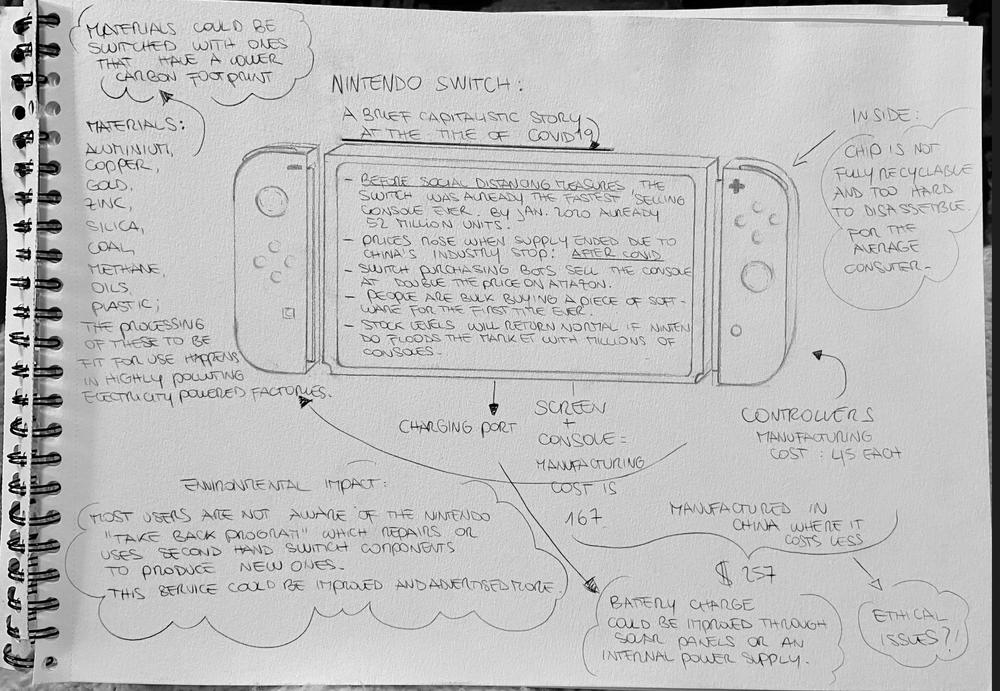 MATERIALS COULD BE
SWITCHED WITH ONES
THAT HAVE A LOWER
CARBON FOOTPRINT
NINTENDO SWITCH:
A BRIEF CAPITALISTIC STORY
AT THE TIME OF COVID19
MATERIALS:
ALUMINIUM,
COPPER,
GOLD,
ZINC,
SILICA,
COAL,
METHANE,
OILS,
PLASTIC;
THE PROCESSING
OF THESE TO BE
FIT FOR USE HAPPENS
IN HIGHLY POLLUTING
ELECTRICITY POWERED FACTORIES.
- BEFORE SOCIAL DISTANCING MEASURES, THE
SWITCH WAS ALREADY THE FASTEST SELLING
CONSOLE EVER. BY JAN. 2020 ALREADY
52 MILLION UNITS.
- PRICES ROSE WHEN SUPPLY ENDED DUE TO
CHINA'S INDUSTRY STOP: AFTER COVID
- SWITCH PURCHASING BOTS SELL THE CONSOLE
AT DOUBLE THE PRICE ON AMAZON.
- PEOPLE ARE BULK BUYING A PIECE OF SOFT-
WARE FOR THE FIRST TIME EVER.
- STOCK LEVELS WILL RETURN NORMAL IF NINTEN
DO FLOODS THE MARKET WITH MILLIONS OF
CONSOLES.
INSIDE:
CHIP IS NOT
FULLY RECYCLABLE
AND TOO HARD
TO DISASSEMBLE
FOR THE
AVERAGE
CONSUMER.
CHARGING PORT
SCREEN
+
CONSOLE =
MANUFACTURING
COST IS
167
CONTROLLERS
MANUFACTURING
COST : 45 EACH
MANUFACTURED IN
CHINA WHERE IT
COSTS LESS
$ 257
ENVIRONMENTAL IMPACT:
MOST USERS ARE NOT AWARE OF THE NINTENDO
"TAKE BACK PROGRAM" WHICH REPAIRS OR
USES SECOND HAND SWITCH COMPONENTS
TO PRODUCE NEW ONES.
THIS SERVICE COULD BE IMPROVED AND ADVERTISED MORE.
BATTERY CHARGE
COULD BE IMPROVED THROUGH
SOLAR PANELS OR AN
INTERNAL POWER SUPPLY.
ETHICAL
ISSUES?!